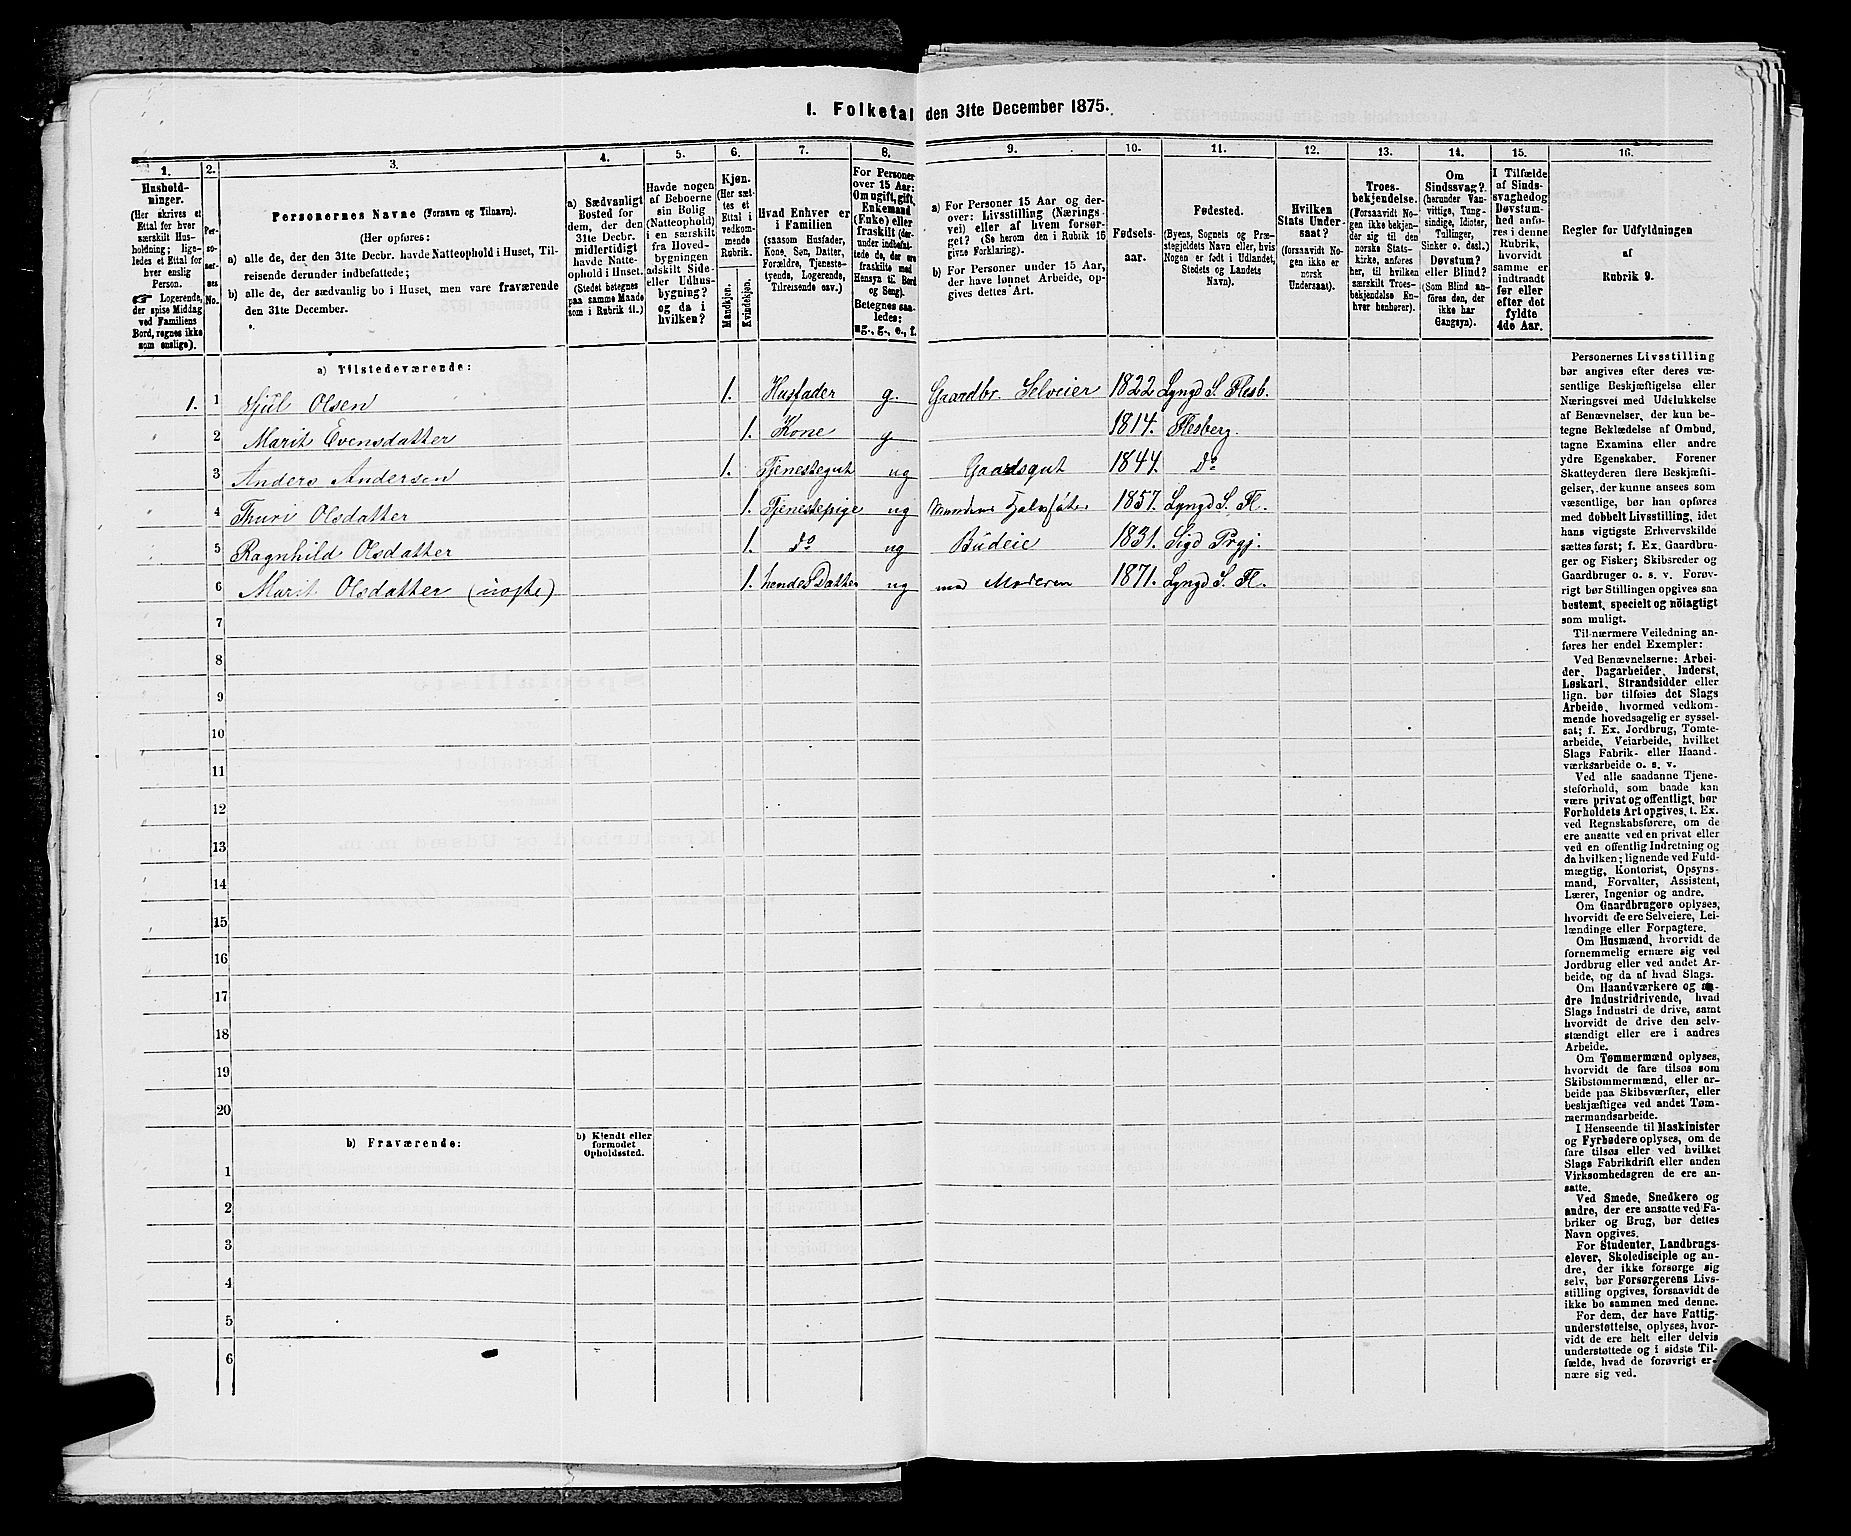 1. Folketal den 31te December 1875.
1. 2. 3. 4. 5. 6. 7. 8. 9. 10. 11. 12. 13. 14. 15. 16.
Husholdninger.
(Her skrives et
Ettal for hver
særskilt Husholdning; ligeledes
et Ettal for
hver enslig
Person.
☞ Logerende,
der spise Middag
ved Familiens
Bord, regnes ikke
som enslige).
Personernes No.
Personernes Navne (Fornavn og Tilnavn).
(Her opføres:
a) alle de, der den 31te Decbr. havde Natteophold i Huset, Tilreisende derunder indbefattede;
b) alle de, der sædvanlig bo i Huset, men vare fraværende
den 31te December.
a) Sædvanligt
Bosted for
dem, der den
31te Decbr.
midlertidigt
havde Natteophold
i Huset.
(Stedet betegnes
paa samme Maade
som i Rubrik 11.)
Havde nogen
af Beboerne
sin Bolig
(Natteophold)
i en særskilt
fra Hovedbygningen
adskilt Side-
eller Udhusbygning?
og da i
hvilken?
Kjøn.
(Her sættes
et
Ettal i
vedkommende
Rubrik.
Mandkjøn.
Kvindekjøn.
Hvad Enhver er
i Familien
(saasom Husfader,
Kone, Søn, Datter,
Forældre, Tjenestetyende,
Logerende,
Tilreisende osv.)
For Personer
over 15 Aar:
Om ugift, gift,
Enkemand
(Enke) eller
fraskilt (derunder
indbefattede
de, der ere
fraskilte med
Hensyn til Bord
og Seng).
Betegnes saaledes:
ug., g., e., f.
a) For Personer 15 Aar og derover:
Livsstilling (Næringsvei)
eller af hvem forsørget?
(Se herom den i Rubrik 16
givne Forklaring).
b) For Personer under 15 Aar,
der have lønnet Arbeide, opgives
dettes Art.
Fødselsaar.
Fødested.
(Byens, Sognets og Præstegjeldets
Navn eller, hvis
Nogen er født i Udlandet,
Stedets og Landets
Navn).
Hvilken
Stats Undersaat?
(forsaavidt Nogen
ikke er
norsk
Undersaat).
Troesbekjendelse.
(Forsaavidt Nogen
ikke bekjender
sig til den
norske Statskirke,
anføres
her, til hvilken
særskilt Troesbekjendelse
Enhver
henhører).
Om
Sindssvag?
(herunder Vanvittige,
Tungsindige,
Idioter,
Tullinger,
Sinker o. desl.)
Døvstum?
eller Blind?
(Som Blind anføres
den, der
ikke har
Gangsyn).
I Tilfælde
af Sindssvaghed
og
Døvstumhed
anføres
i denne
Rubrik,
hvorvidt
samme er
indtraadt
før eller
efter det
fyldte
4de Aar.
Regler for Udfyldningen
af
Rubrik 9.
a) Tilstedeværende:
1. 1 Olsen 1. Husfader g. Gaardbr. Selveier 1822 Lyngd S. Flesb.
" 2 Marit Evensdatter 1. Kone g 1814. Flesberg.
" 3 Anders Andersen 1. Tjenestegut ug Gaardsgut 1844. Do
" 4 Thuri Olsdatter 1. Tjenestepige ug 1857. Lyngd S. Fl.
" 5 Ragnhild Olsdatter 1. do ug Budeie 1831. Sigd Prgj.
" 6 Marit Olsdatter (uægte) 1. hendes Datter ug med Moderen 1871. Lyngd S. Fl.
7
8
9
10
11
12
13
14
15
16
17
18
19
20
b) Fraværende:
b) Kjendt eller
formodet
Opholdssted.
1
2
3
4
5
6
Personernes Livsstilling
bør angives efter deres væsentlige
Beskjæftigelse eller
Næringsvei med Udelukkelse
af Benævnelser, der kun betegne
Beklædelse af Ombud,
tagne Examina eller andre
ydre Egenskaber. Forener
Skatteyderen flere Beskjæftigelser,
der kunne ansees som
væsentlige, bør han opføres
med dobbelt Livsstilling, idet
hans vigtigste Erhvervskilde
sættes først; f. Ex. Gaardbruger
og Fisker; Skibsreder og
Gaardbruger o. s. v. Forøvrigt
bør Stillingen opgives saa
bestemt, specielt og nöiagtigt
som muligt.
Til nærmere Veiledning anføres
her endel Exempler:
Ved Benævnelserne: Arbeider,
Dagarbeider, Inderst,
Løskarl, Strandsidder eller
lign. bør tilføies det Slags
Arbeide, hvormed vedkommende
hovedsagelig er sysselsat;
f. Ex. Jordbrug, Tomtearbeide,
Veiarbeide, hvilket
Slags Fabrik- eller Haandværksarbeide
o. s. v.
Ved alle saadanne Tjenesteforhold,
som baade kan
være privat og offentligt, bør
Forholdets Art opgives, t. Ex.
ved Regnskabsførere, om de
ere ansatte ved en privat eller
ved en offentlig Indretning og
da hvilken; lignende ved Fuldmægtig,
Kontorist, Opsynsmand,
Forvalter, Assistent,
Lærer, Ingeniør og andre.
Om Gaardbrugere oplyses,
hvorvidt de ere Selveiere, Leilændinge
eller Forpagtere.
Om Husmænd, hvorvidt de
fornemmelig ernære sig ved
Jordbrug eller ved andet Arbeide,
og da af hvad Slags.
Om Haandværkere og andre
Industridrivende, hvad
Slags Industri de drive, samt
hvorvidt de drive den selvstændigt
eller ere i andres
Arbeide.
Om Tømmermænd oplyses,
hvorvidt de fare tilsøs som
Skibstømmermænd, eller arbeide
paa Skibsværfter, eller
beskjæftiges ved andet Tømmermandsarbeide.
I Henseende til Maskinister
og Fyrbødere oplyses, om de
fare tilsøs eller ved hvilket
Slags Fabrikdrift eller anden
Virksomhedsgren de ere ansatte.
Ved Smede, Snedkere og
andre, der ere ansatte ved Fabriker
og Brug, bør dettes
Navn opgives.
For Studenter, Landbrugselever,
Skoledisciple og andre,
der ikke forsørge sig
selv, bør Forsørgerens Livsstilling
opgives, forsaavidt de
ikke bo sammen med denne.
For dem, der have Fattigunderstøttelse,
oplyses, hvorvidt
de ere helt eller delvis
understøttede og i sidste Tilfælde,
hvad de forøvrigt ernære
sig ved.